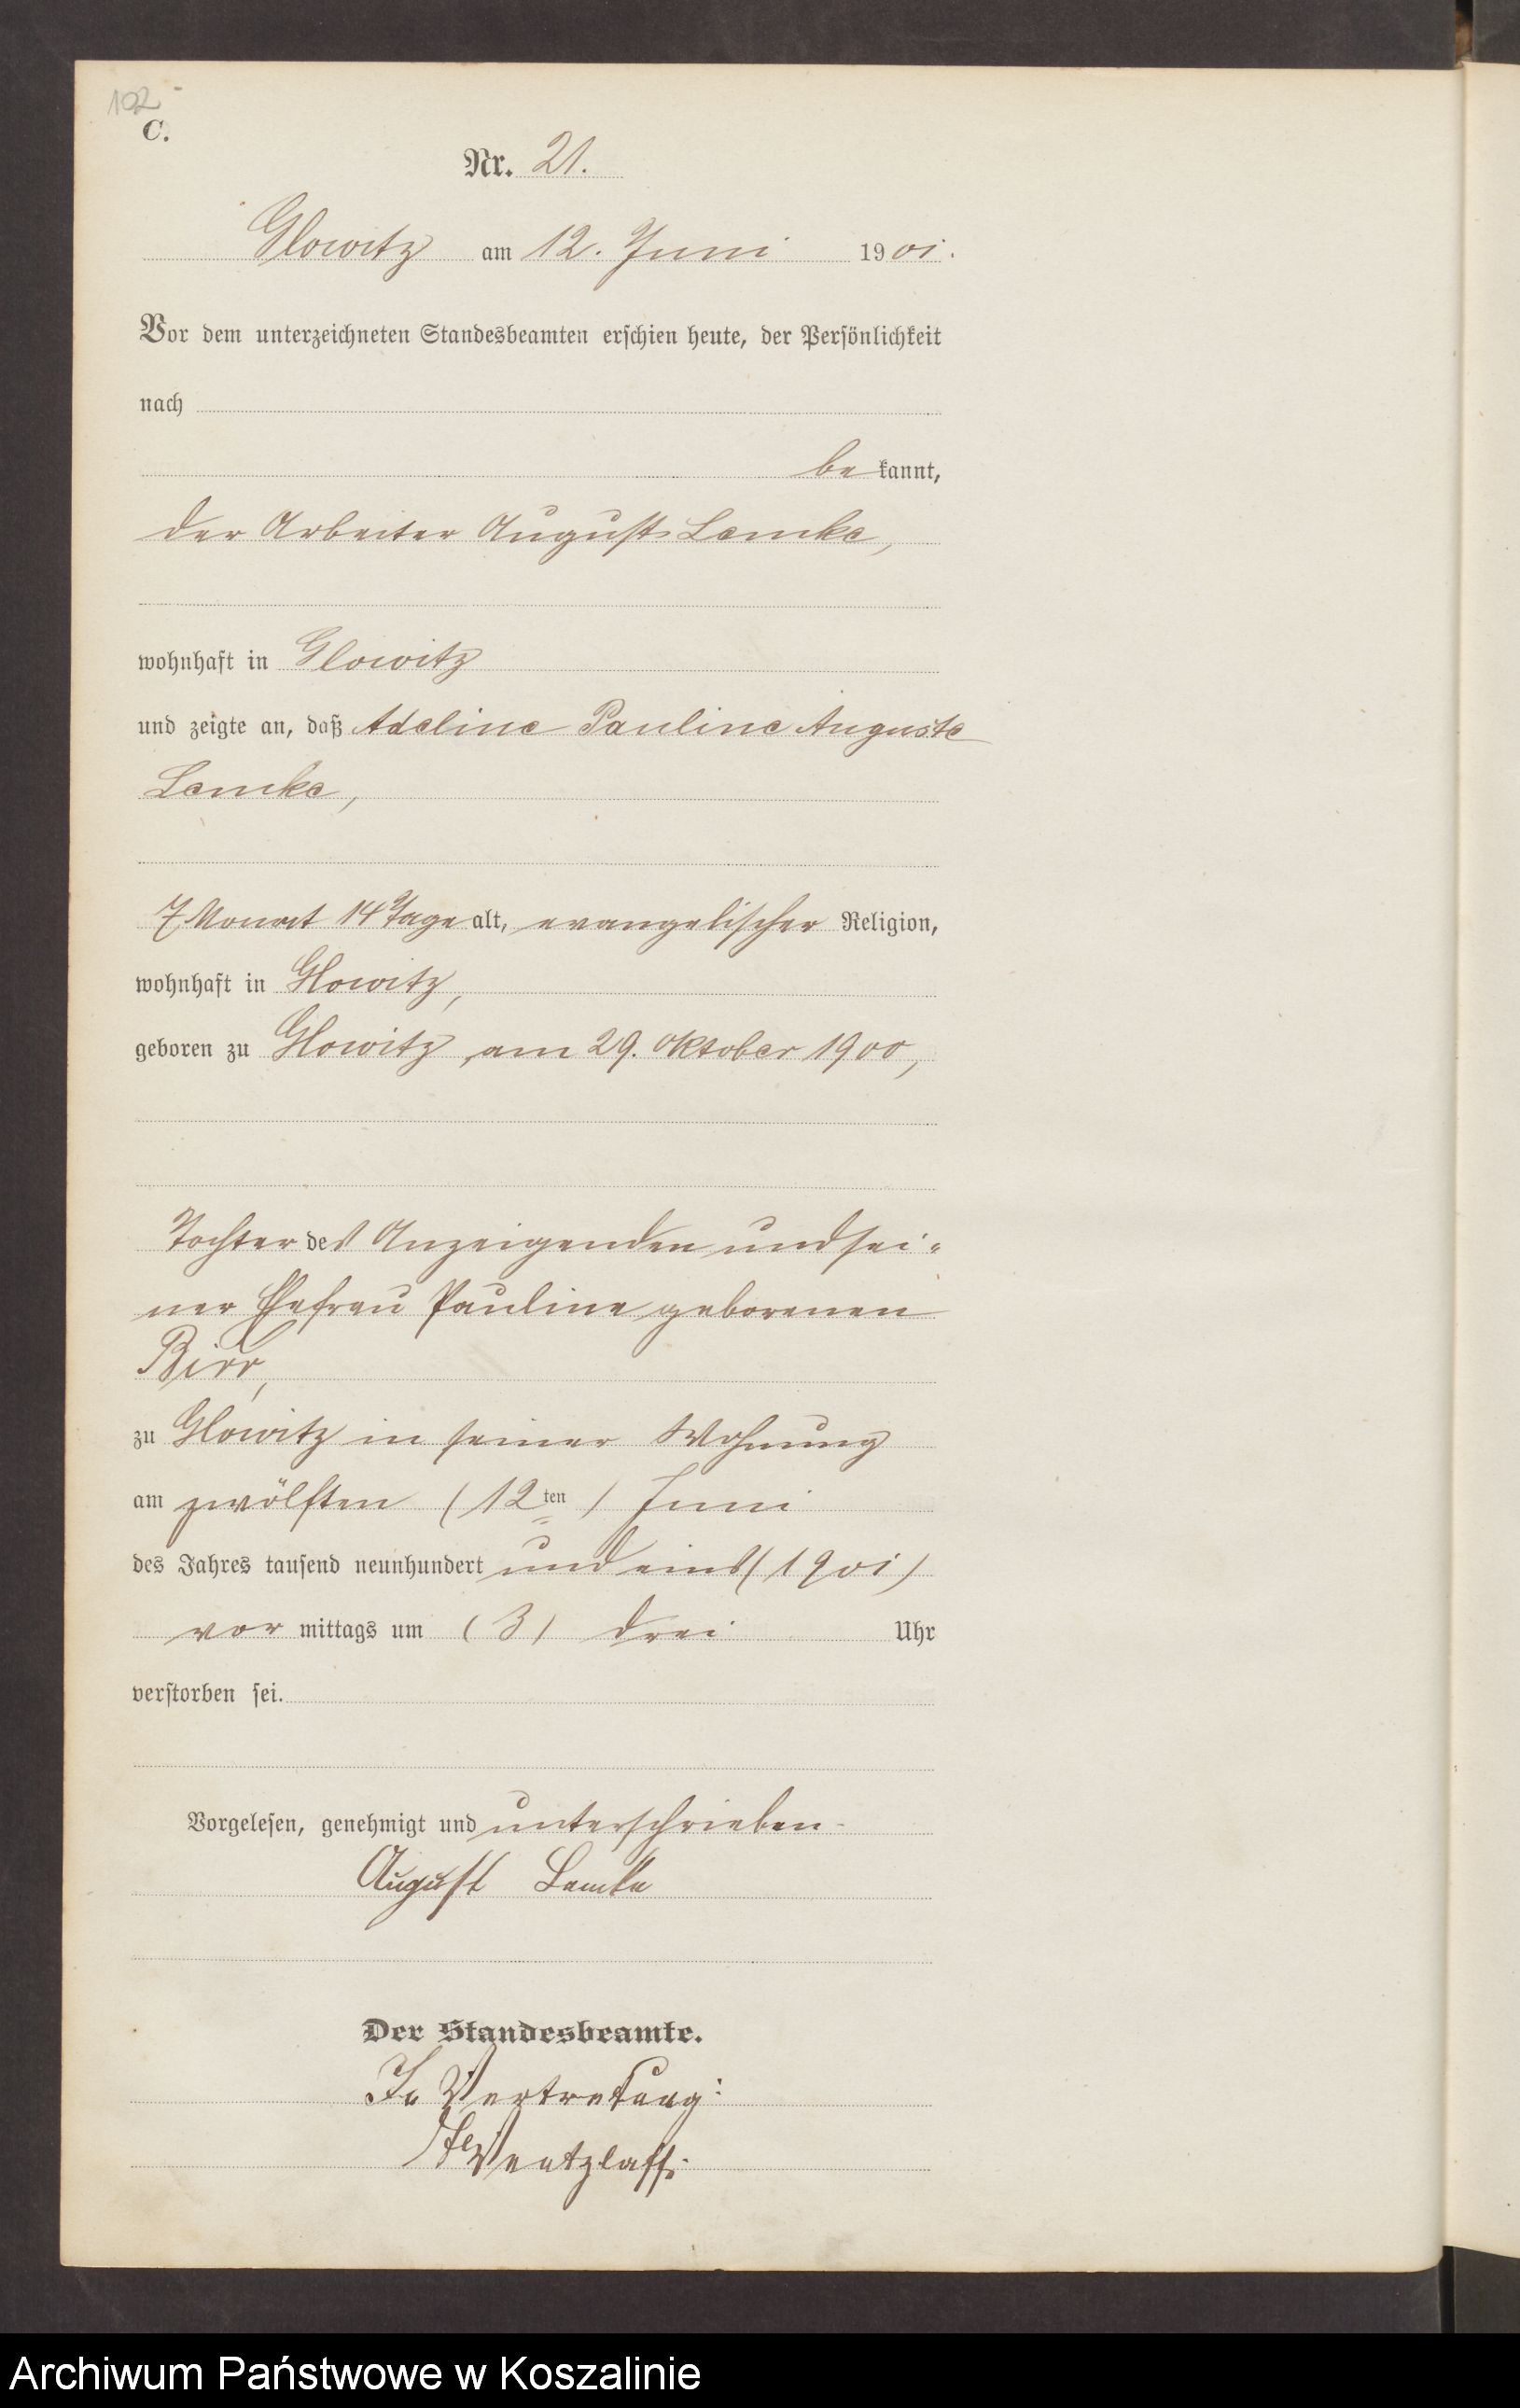 102
C.
Nr. 21.
Glowitz am 12. Juni 1901.
Vor dem unterzeichneten Standesbeamten erschien heute, der Persönlichkeit
nach
be kannt,
der Arbeiter August Lemke,
wohnhaft in Glowitz
und zeigte an, daß Adeline Pauline Auguste
Lemke,
7 Monat 14 Tage alt, evangelischer Religion,
wohnhaft in Glowitz,
geboren zu Glowitz, am 29. Oktober 1900,
Tochter des Anzeigenden und sei-
ner Ehefrau Pauline geborenen
Birr,
zu Glowitz in seiner Wohnung
am zwölften (12ten) Juni
des Jahres tausend neunhundert und eins (1901)
vor mittags um (3) drei Uhr
verstorben sei.
Vorgelesen, genehmigt und unterschrieben
August Lemke
Der Standesbeamte.
In Vertretung:
Wentzlaff.
Archiwum Państwowe w Koszalinie